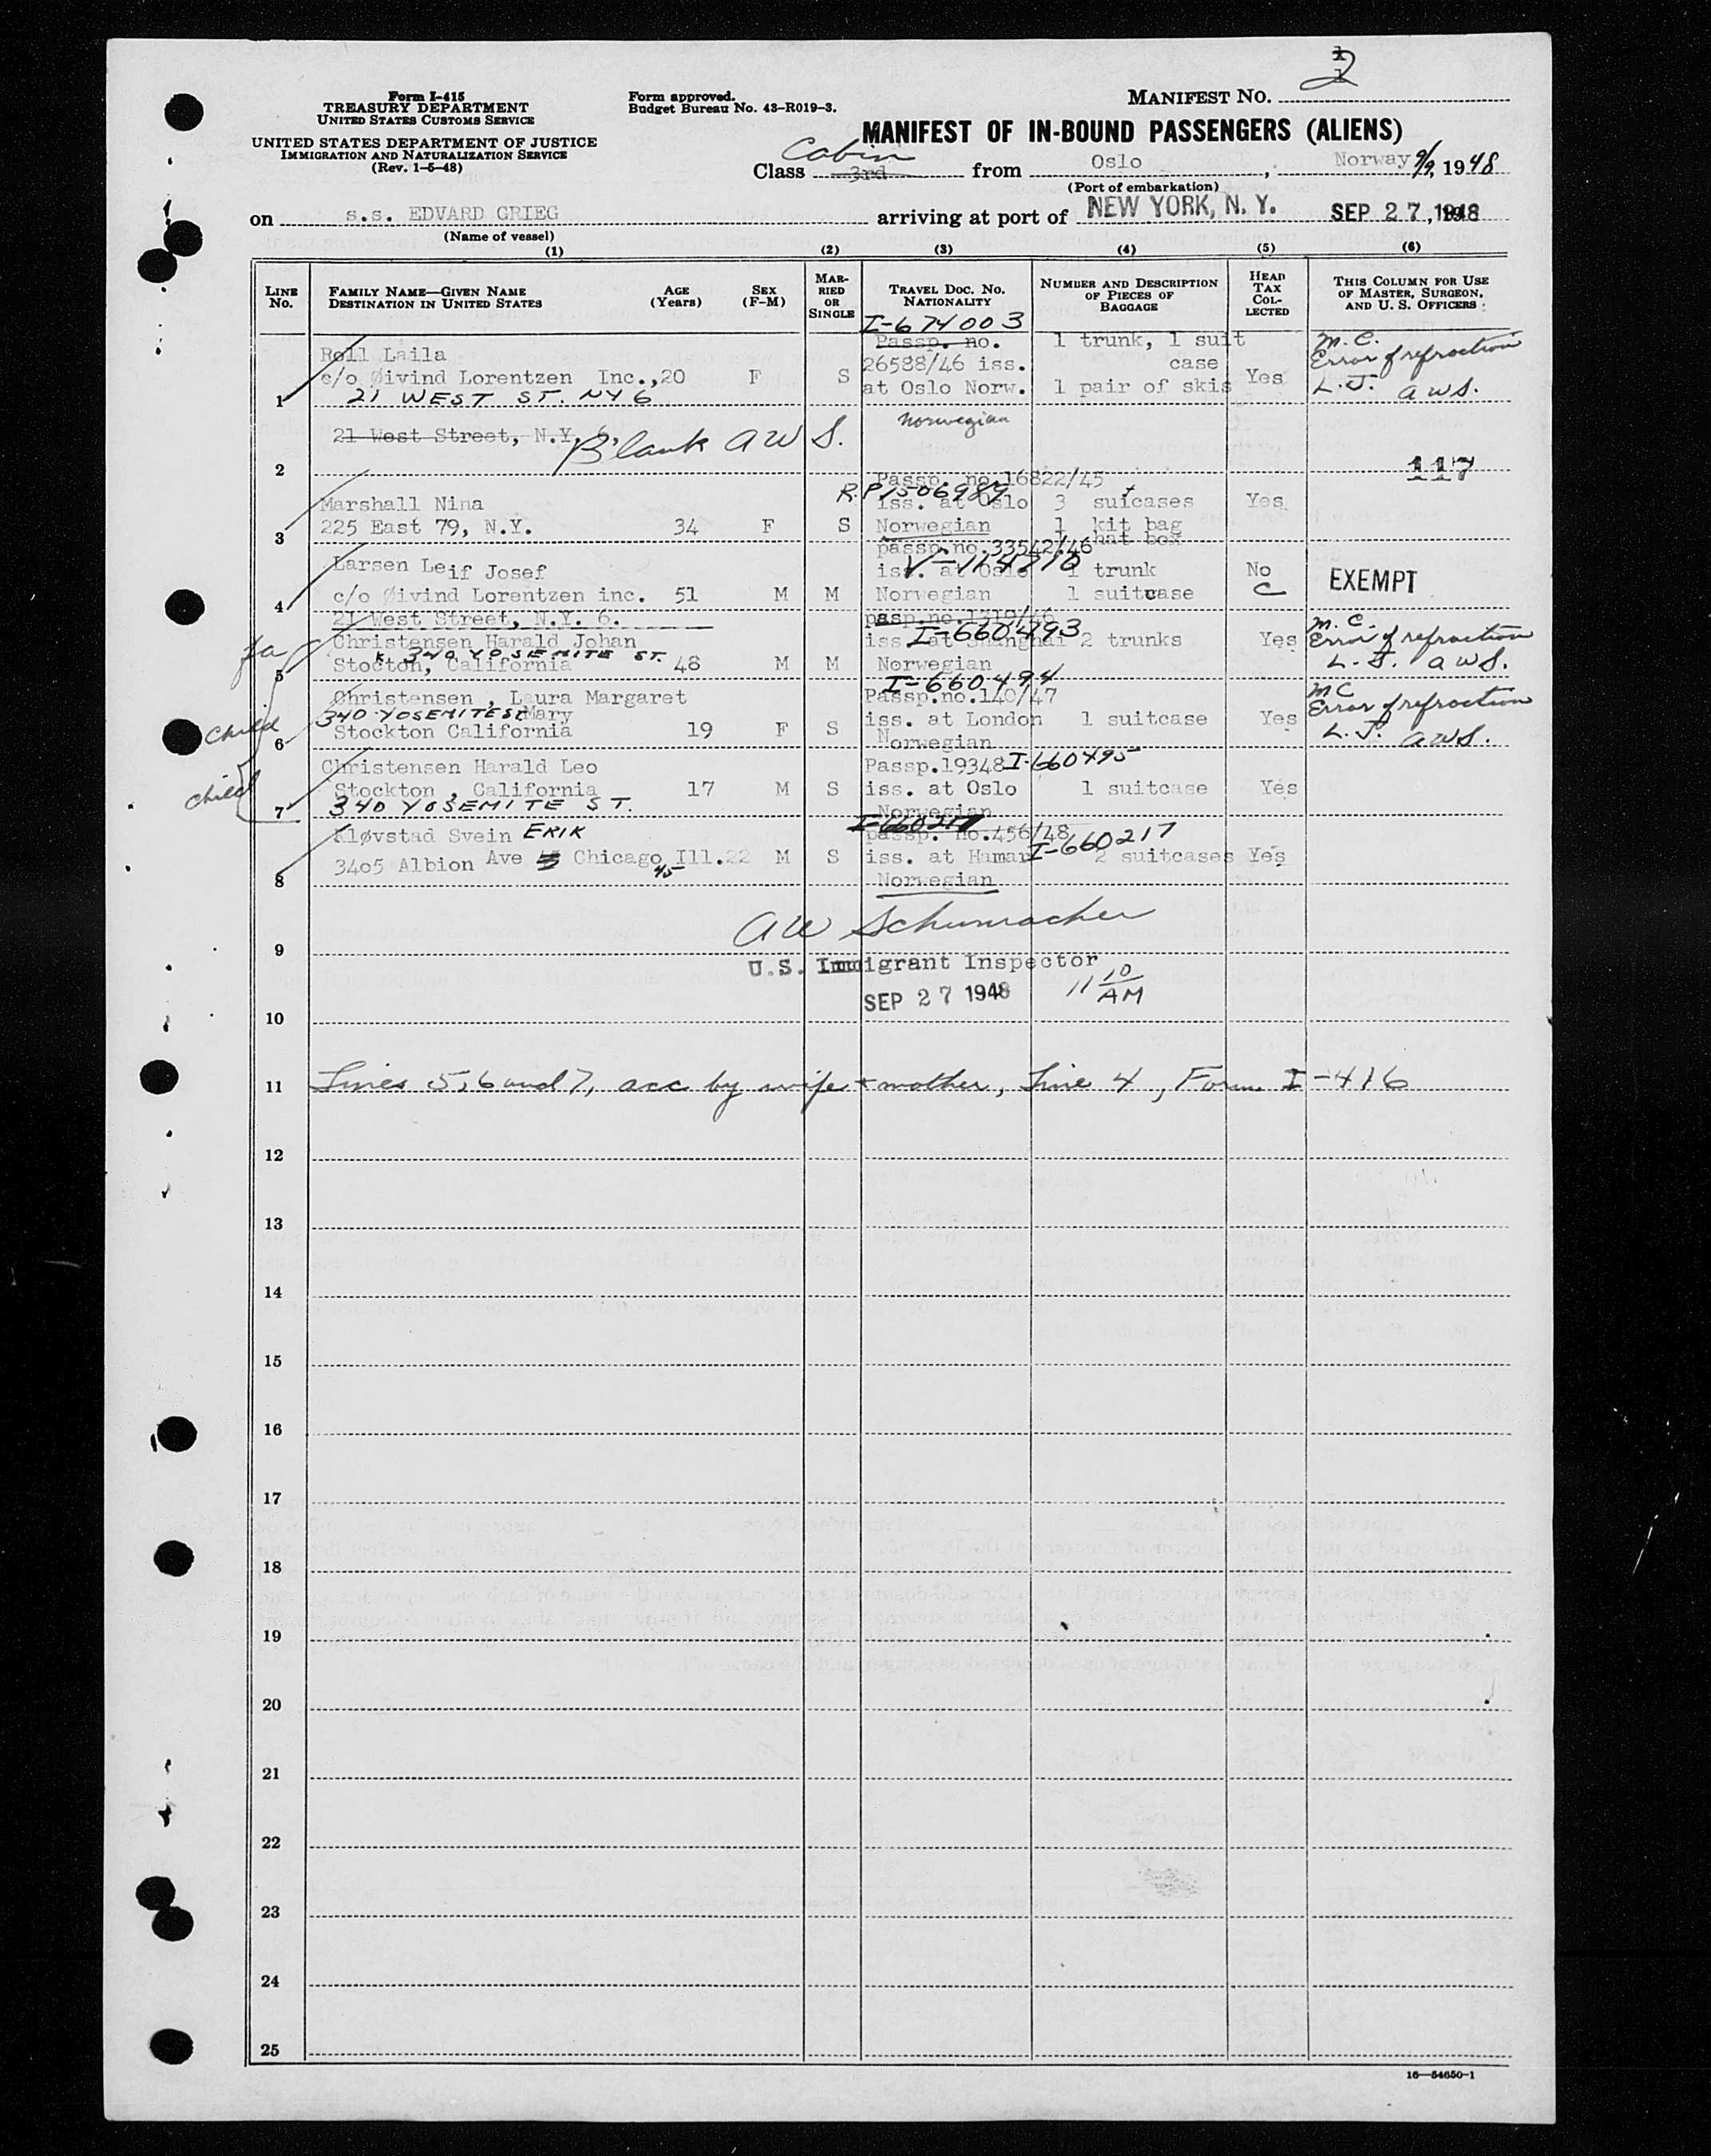 2
MANIFEST NO.
Form I-415
TREASURY DEPARTMENT
UNITED STATES CUSTOMS SERVICE
UNITED STATES DEPARTMENT OF JUSTICE
IMMIGRATION AND NATURALIZATION SERVICE
(Rev. 1-5-48)
Form approved.
Budget Bureau No. 43-R019-3.
MANIFEST OF IN-BOUND PASSENGERS (ALIENS)
Cabin
Class 3rd from Oslo, Norway 9/9, 1948
(Port of embarkation)
on s.s. EDVARD GRIEG arriving at port of NEW YORK, N. Y. SEP 27, 1948
(Name of vessel)
(1) (2) (3) (4) (5) (6)
LINE No.
FAMILY NAME—GIVEN NAME
DESTINATION IN UNITED STATES
AGE (Years)
SEX (F-M)
MARRIED OR SINGLE
TRAVEL DOC. NO. NATIONALITY
NUMBER AND DESCRIPTION OF PIECES OF BAGGAGE
HEAD TAX COLLECTED
THIS COLUMN FOR USE OF MASTER, SURGEON, AND U. S. OFFICERS
I-674003
Roll Laila Passp. no. 1 trunk, 1 suit M.C.
26588/46 iss. case Error of refraction
c/o Øivind Lorentzen Inc.,20 F S at Oslo Norw. 1 pair of skis Yes L.J. AWS.
1 21 WEST ST. NY 6
Norwegian
21 West Street, N.Y. 6,
Blank AWS.
2 117
Passp. no.16822/45
R.P 1506989
Marshall Nina iss. at Oslo 3 suicases Yes
225 East 79, N.Y. 34 F S Norwegian 1 kit bag
3 1 hat box
passp.no.33542/46
V-1154710
Larsen Leif Josef iss. at Oslo 1 trunk No EXEMPT
c/o Øivind Lorentzen inc. 51 M M Norwegian 1 suitcase C
4
21 West Street, N.Y. 6.
I-660493 M.C.
fa Christensen Harald Johan iss. at Shanghai 2 trunks Yes Error of refraction
340 YOSEMITE ST.
Stocton, California 48 M M Norwegian L.J. AWS.
5
I-660494 MC
Christensen , Laura Margaret Passp.no.140/47 Error of refraction
child 340 YOSEMITE ST Mary iss. at London 1 suitcase Yes
6 Stockton California 19 F S Norwegian L.J. AWS.
Christensen Harald Leo Passp.19348 I-660495
child Stockton , California 17 M S iss. at Oslo 1 suitcase Yes
7 340 YOSEMITE ST. Norwegian
I-660217
Kløvstad Svein ERIK passp. no.456/48 I-660217
3405 Albion Ave Chicago 45 Ill.22 M S iss. at Hamar 2 suitcases Yes
8 Norwegian
AW Schumacher
9
U.S. Immigrant Inspector
SEP 27 1948 11 10 AM
10
11 Lines 5, 6 and 7, acc by wife + mother, Line 4, Form I-416
12
13
14
15
16
17
18
19
20
21
22
23
24
25
16—54650-1